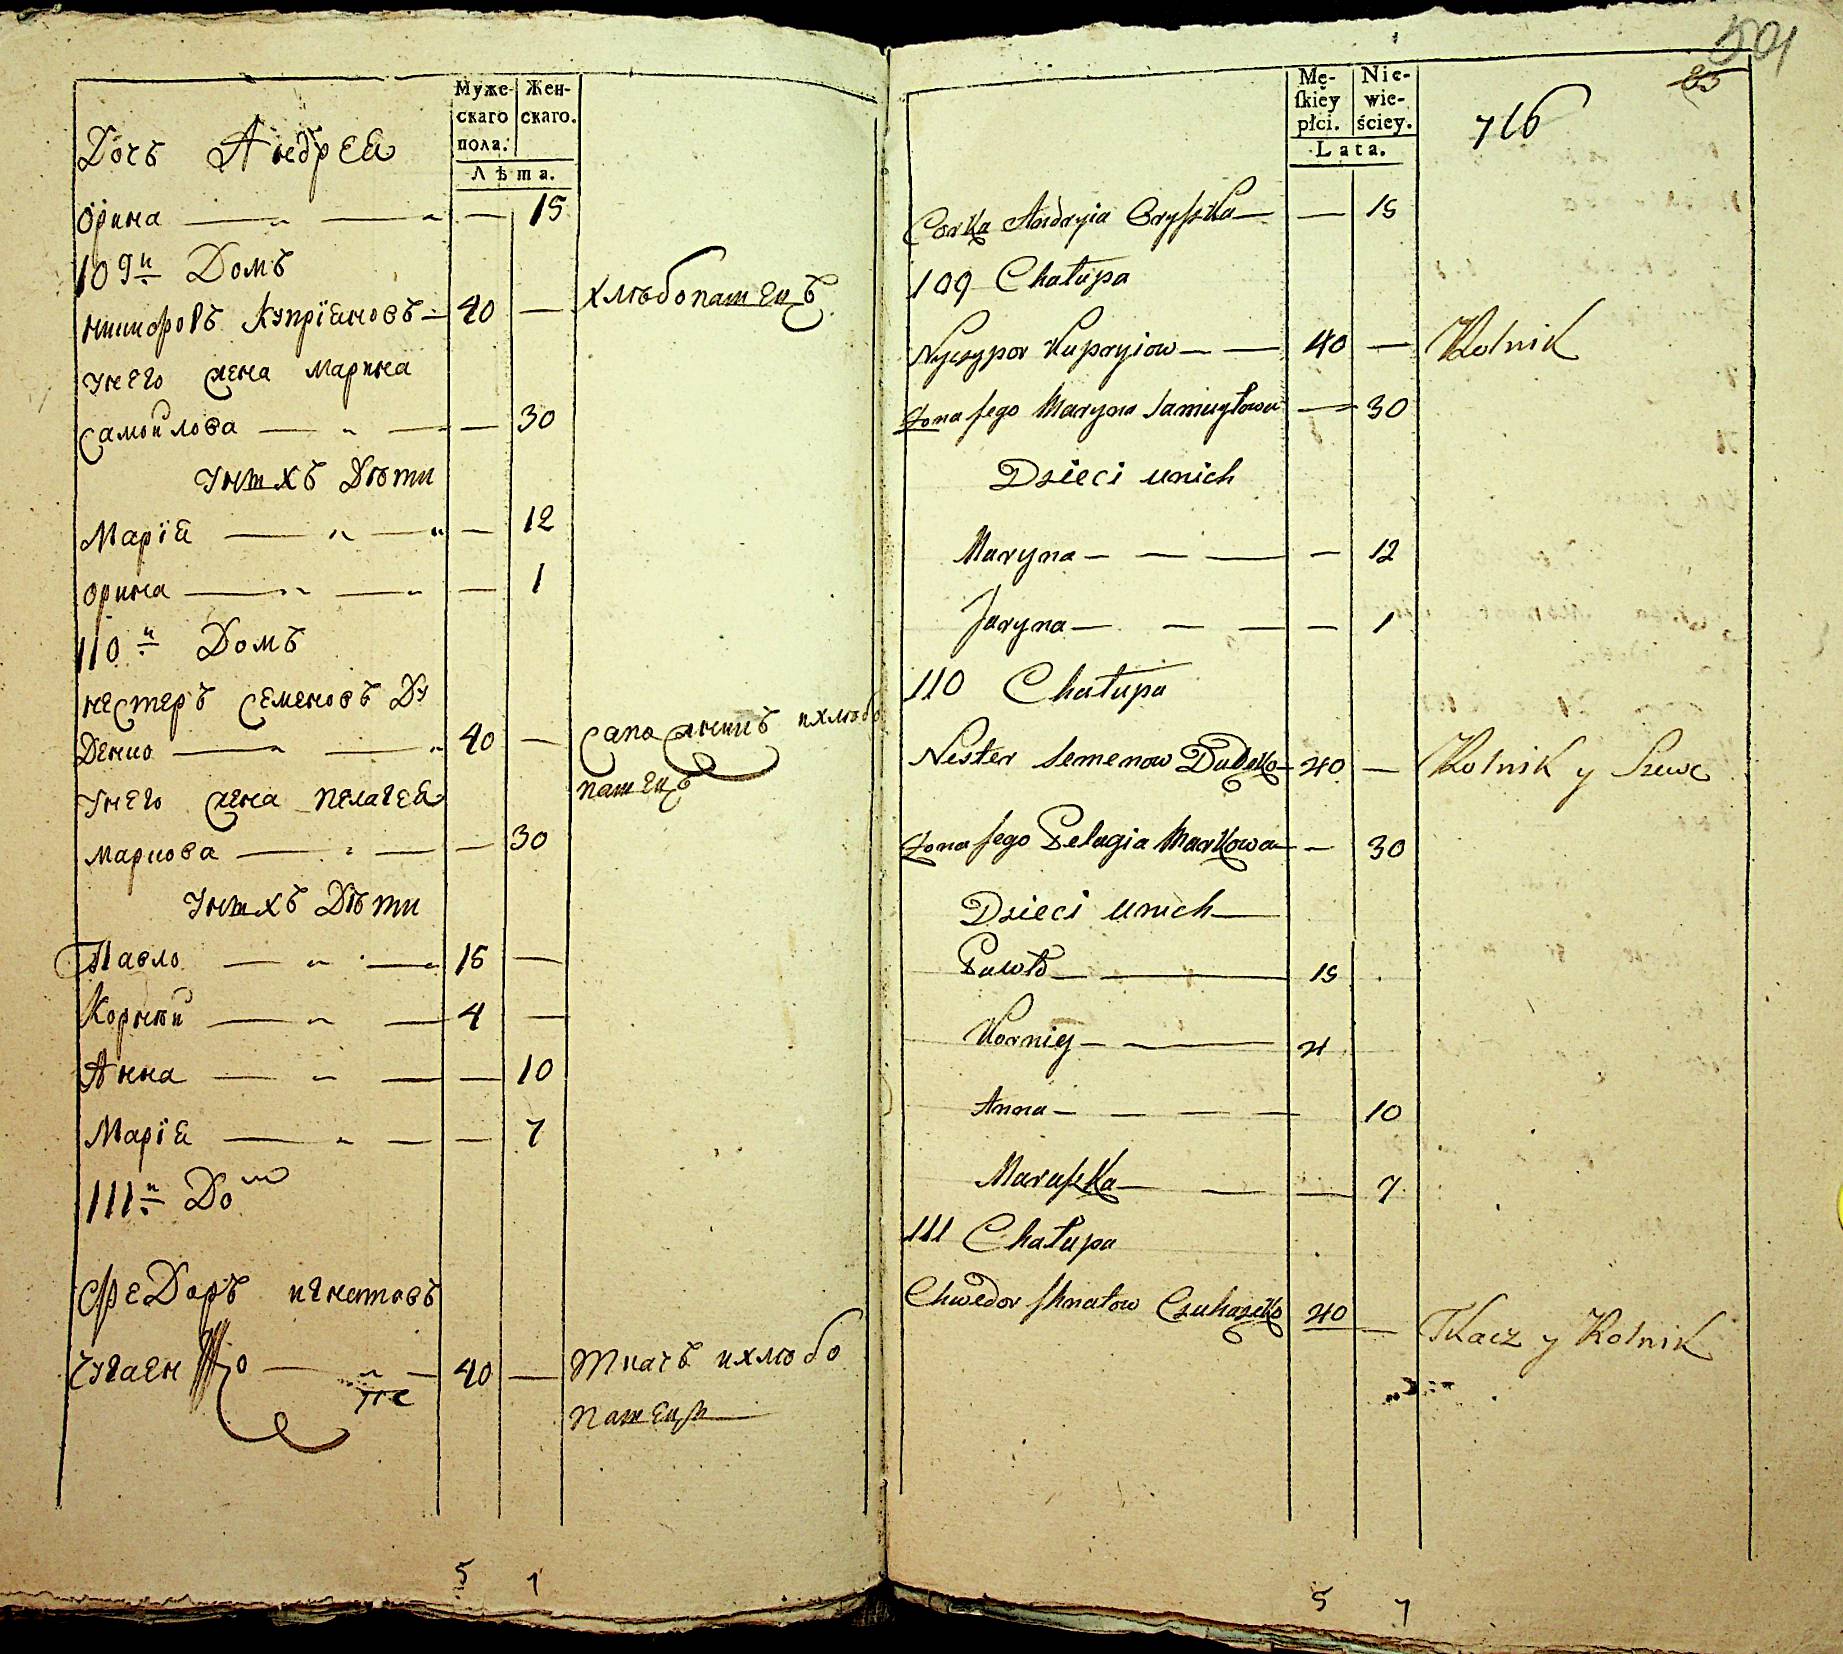 Муже-
скаго
пола.
Жен-
скаго.
Лѣта.
Дочь Андрея
Орина — — — 15
109й Домъ
никифоръ Купріяновъ — 40 — хлѣбопашецъ
унего жена марина
самойлова — — — 30
унихъ Дѣти
Марія — — — 12
орина — — — 1
110й Домъ
нестеръ семеновъ Ду
Денко — — 40 — сапожникъ ихлѣбо
пашецъ
унего жена пелагея
маркова — — — 30
унихъ Дѣти
Павло — — 15 —
Корнѣй — — 4 —
Анна — — — 10
Марія — — — 7
111й Дом
Федоръ игнатовъ
— — 40 — ткачъ ихлѣбо
пашецъ
5 7
501
85
716
Mę-
skiey
płci.
Nie-
wie-
ściey.
Lata.
Corka Andryia Oryszka — — 15
109 Chałupa
Nyczypor Kupryiow — — 40 — Rolnik
Żona jego Maryna Samuyłowa — 30
Dzieci unich
Maryna — — — — 12
Jaryna — — — — 1
110 Chałupa
Nester Semenow Dudeko 40 — Rolnik y Szewc
Żona jego Pelagia Markowa — 30
Dzieci unich —
Pawło — — 15
Korniey — — 4
Anna — — — — 10
Maruszka — — — 7
111 Chałupa
Chwedor Ihnatow 40 — Tkacz y Rolnik
5 7